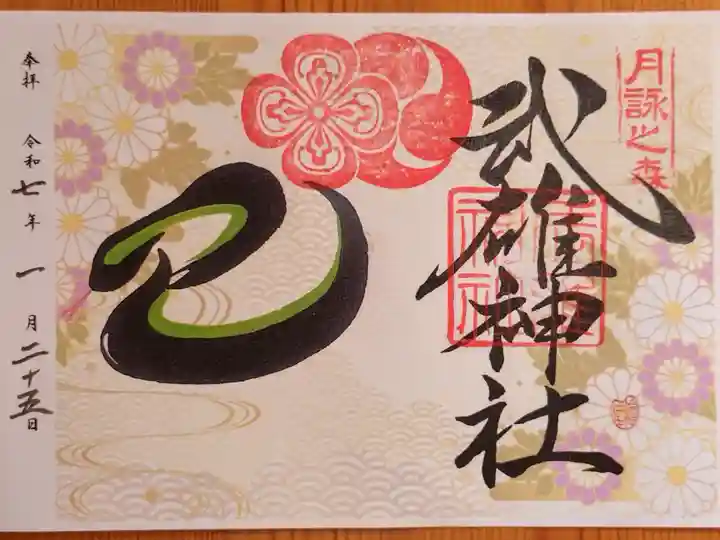 月詠之森
武雄神社
巳
奉拝 令和七年 一月二十五日